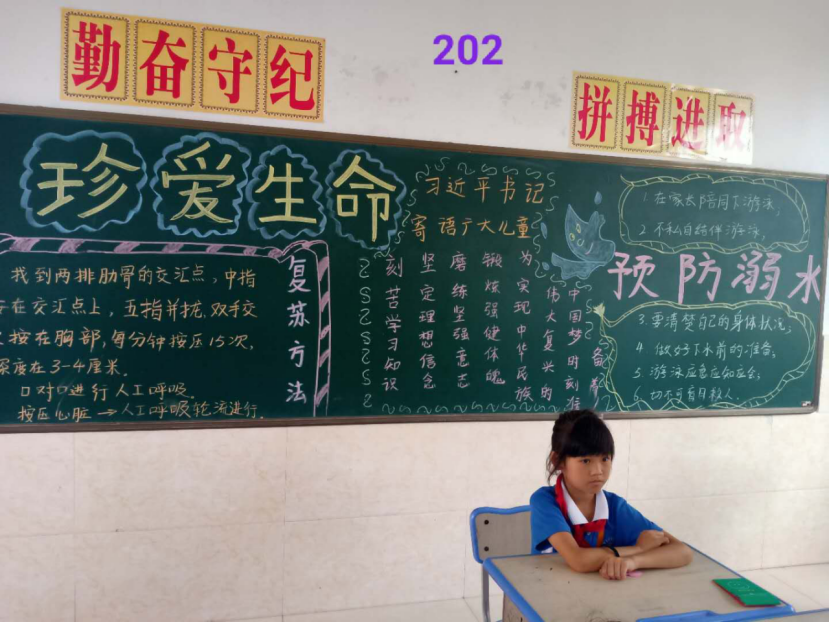 勤奋守纪
202
拼搏进取
珍爱生命
找到两排肋骨的交汇点,中指
在交汇点上,五指并拢,双手交
按在胸部,每分钟按压15次,
深度在3-4厘米.
口对口进行人工呼吸.
按压心脏→人工呼吸轮流进行.
复苏方法
习近平书记
寄语广大儿童
刻苦学习知识
坚定理想信念
磨练坚强意志
锻炼强健体魄
为实现中华民族
伟大复兴的
中国梦时刻准
备着
1.在家长陪同下游泳,
2.不私自结伴游泳,
预防溺水
3.要清楚自己的身体状况;
4.做好下水前的准备;
5.游泳应急应知应会;
6.切不可盲目救人.